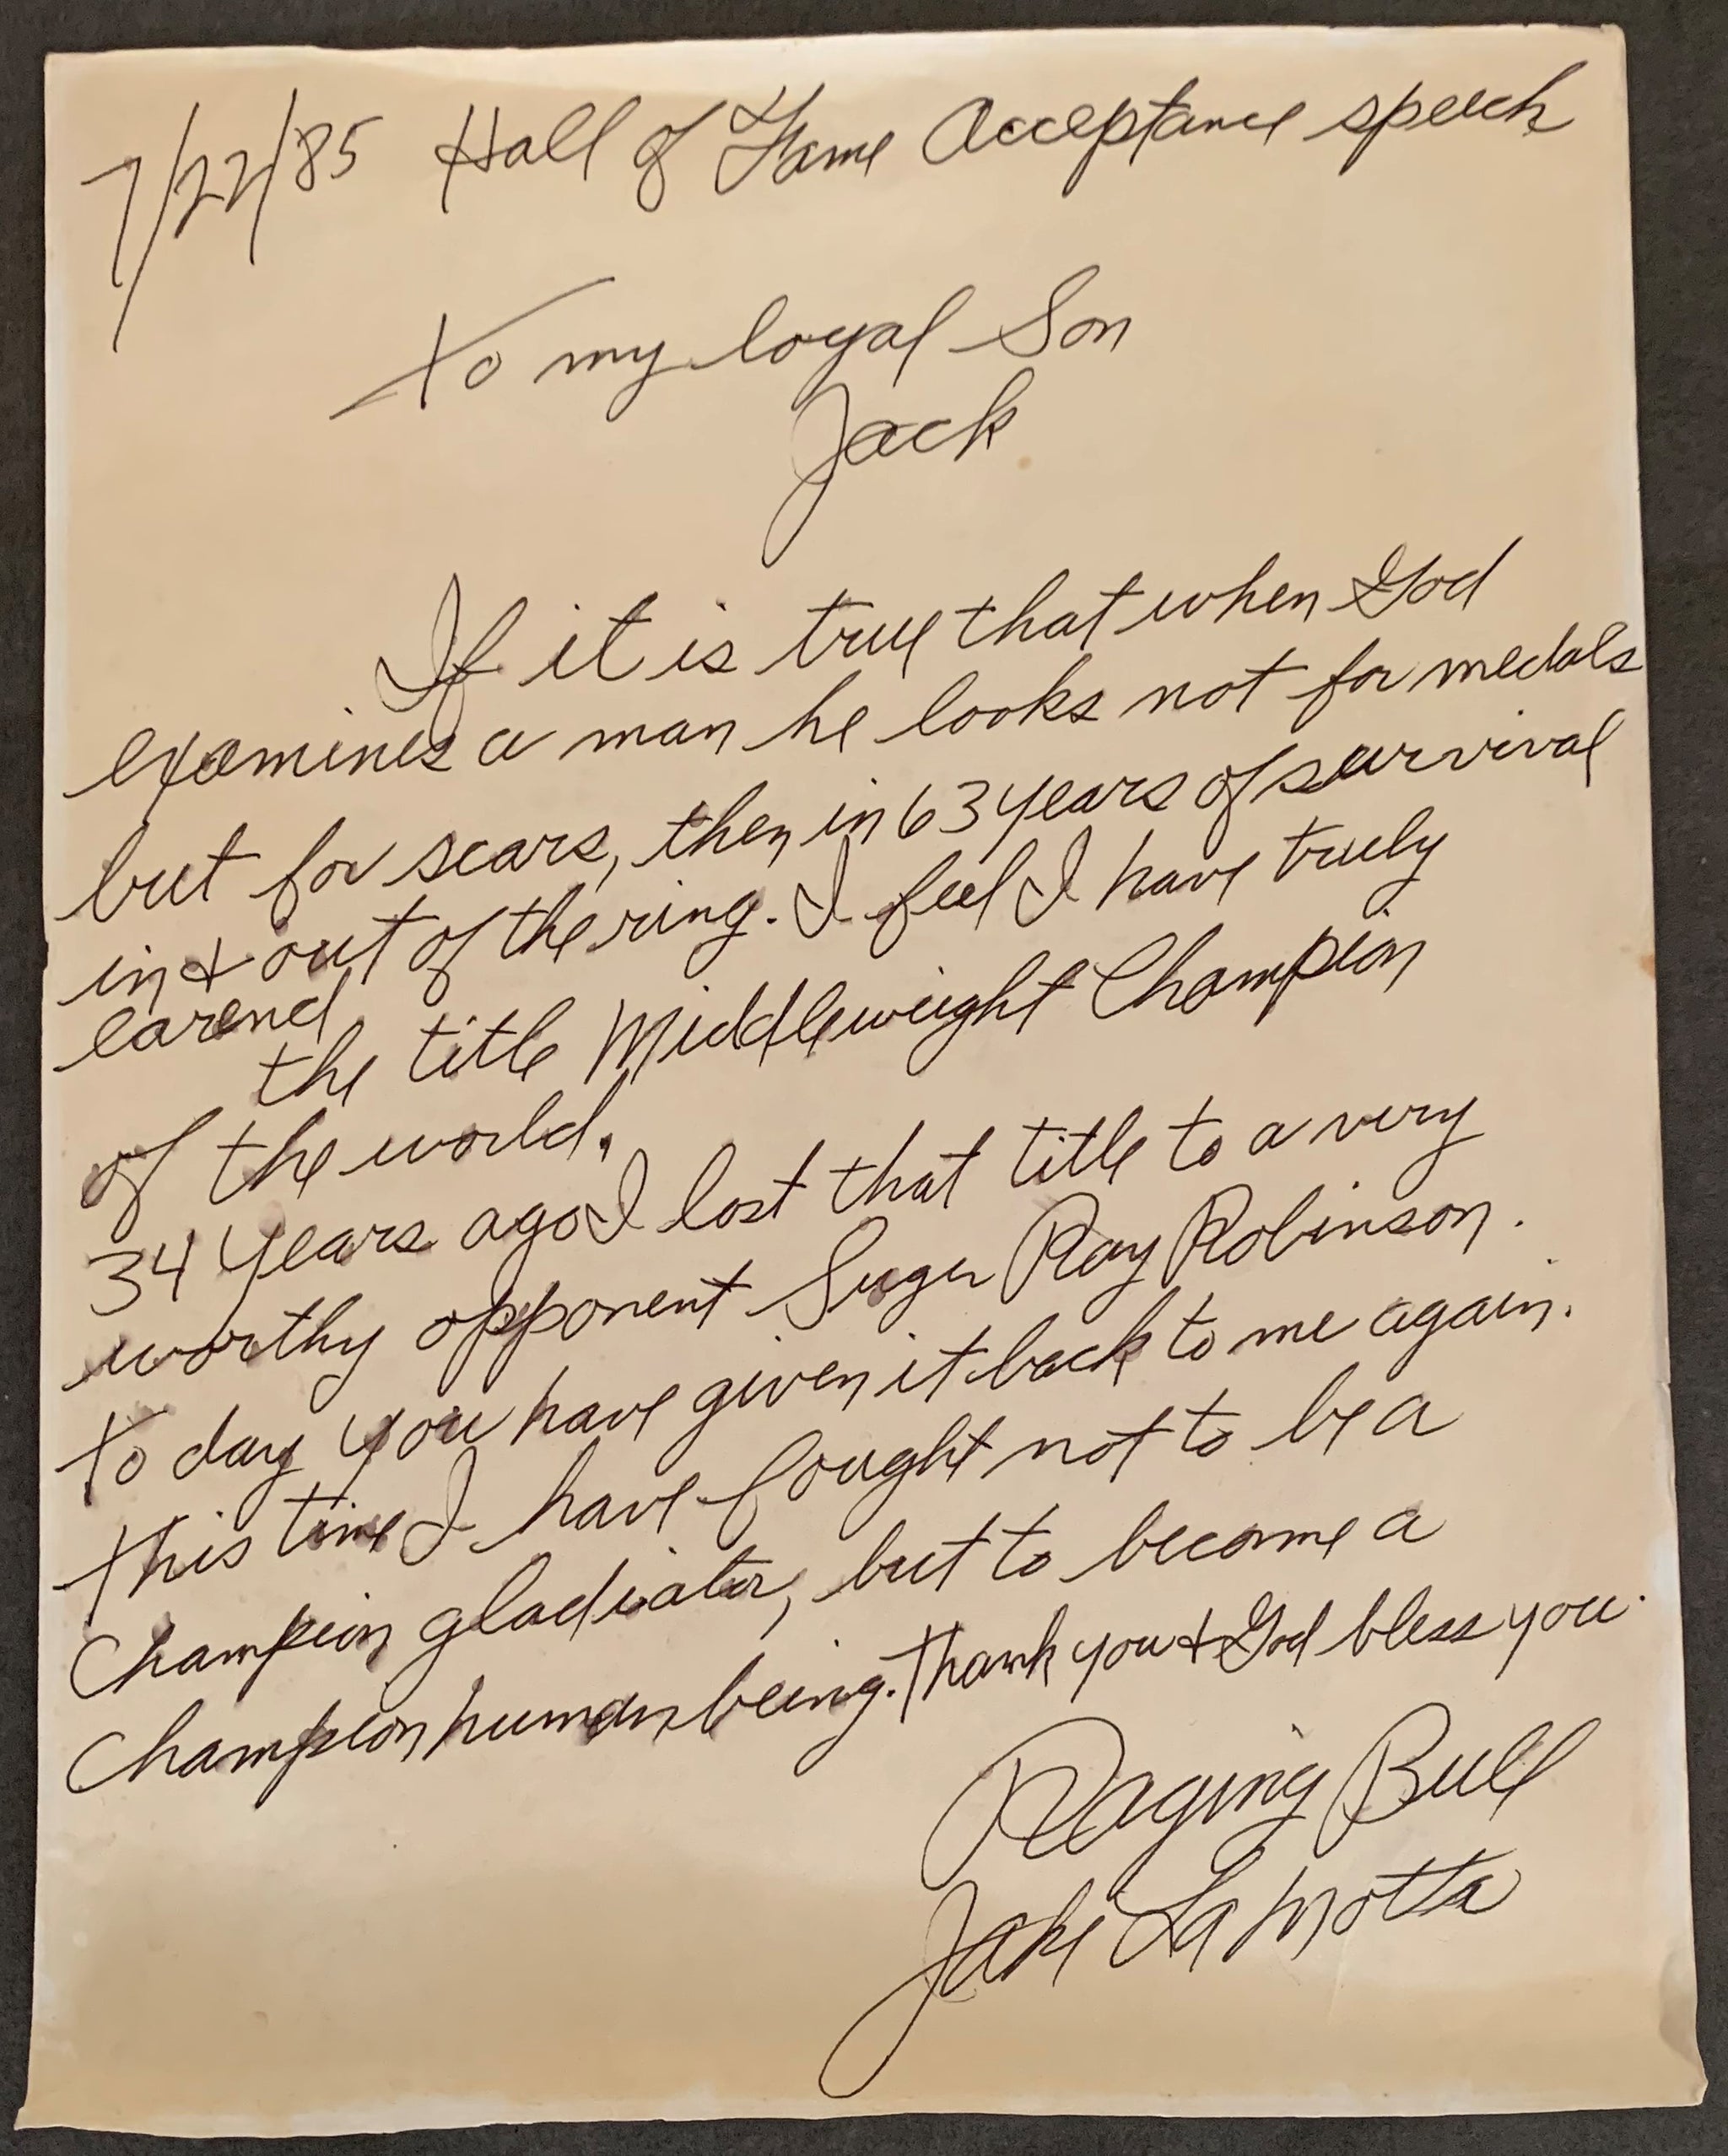 7/22/85 Hall of Fame Acceptance speech
To my loyal Son
Jack
If it is true that when God
examines a man he looks not for medals
but for scars, then in 63 years of survival
in & out of the ring. I feel I have truly
earend
the title Middleweight Champion
of the world.
34 years ago I lost that title to a very
worthy opponent Sugar Ray Robinson.
To day you have given it back to me again.
This time I have fought not to be a
Champion gladiator, but to become a
Champion human being. Thank you & God bless you.
Raging Bull
Jake La Motta